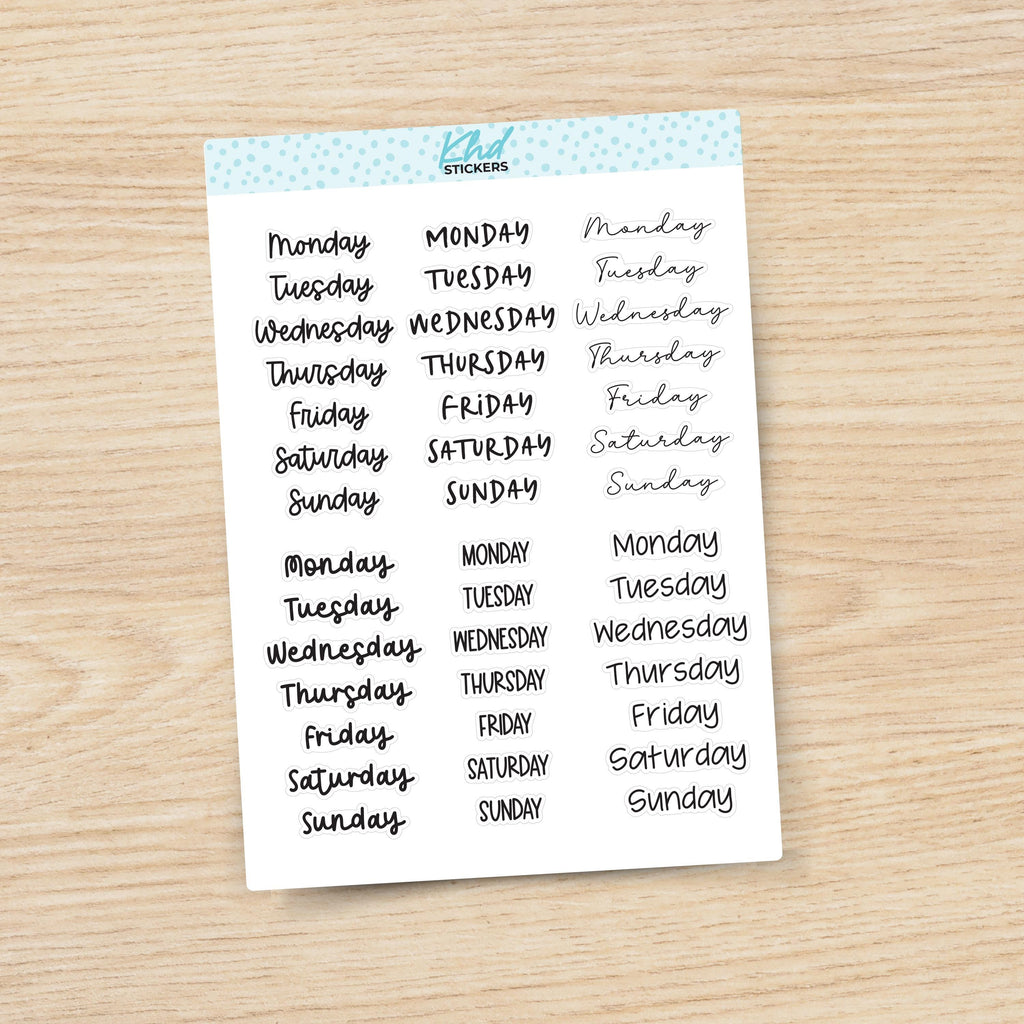 Khd
STICKERS
Monday MONDAY Monday
Tuesday TUESDAY Tuesday
Wednesday WeDNeSDAY Wednesday
Thursday THURSDAY Thursday
Friday FRiDAY Friday
Saturday SATURDAY Saturday
Sunday SUNDAY Sunday
Monday MONDAY Monday
Tuesday TUESDAY Tuesday
Wednesday WEDNESDAY Wednesday
Thursday THURSDAY Thursday
Friday FRIDAY Friday
Saturday SATURDAY Saturday
Sunday SUNDAY Sunday